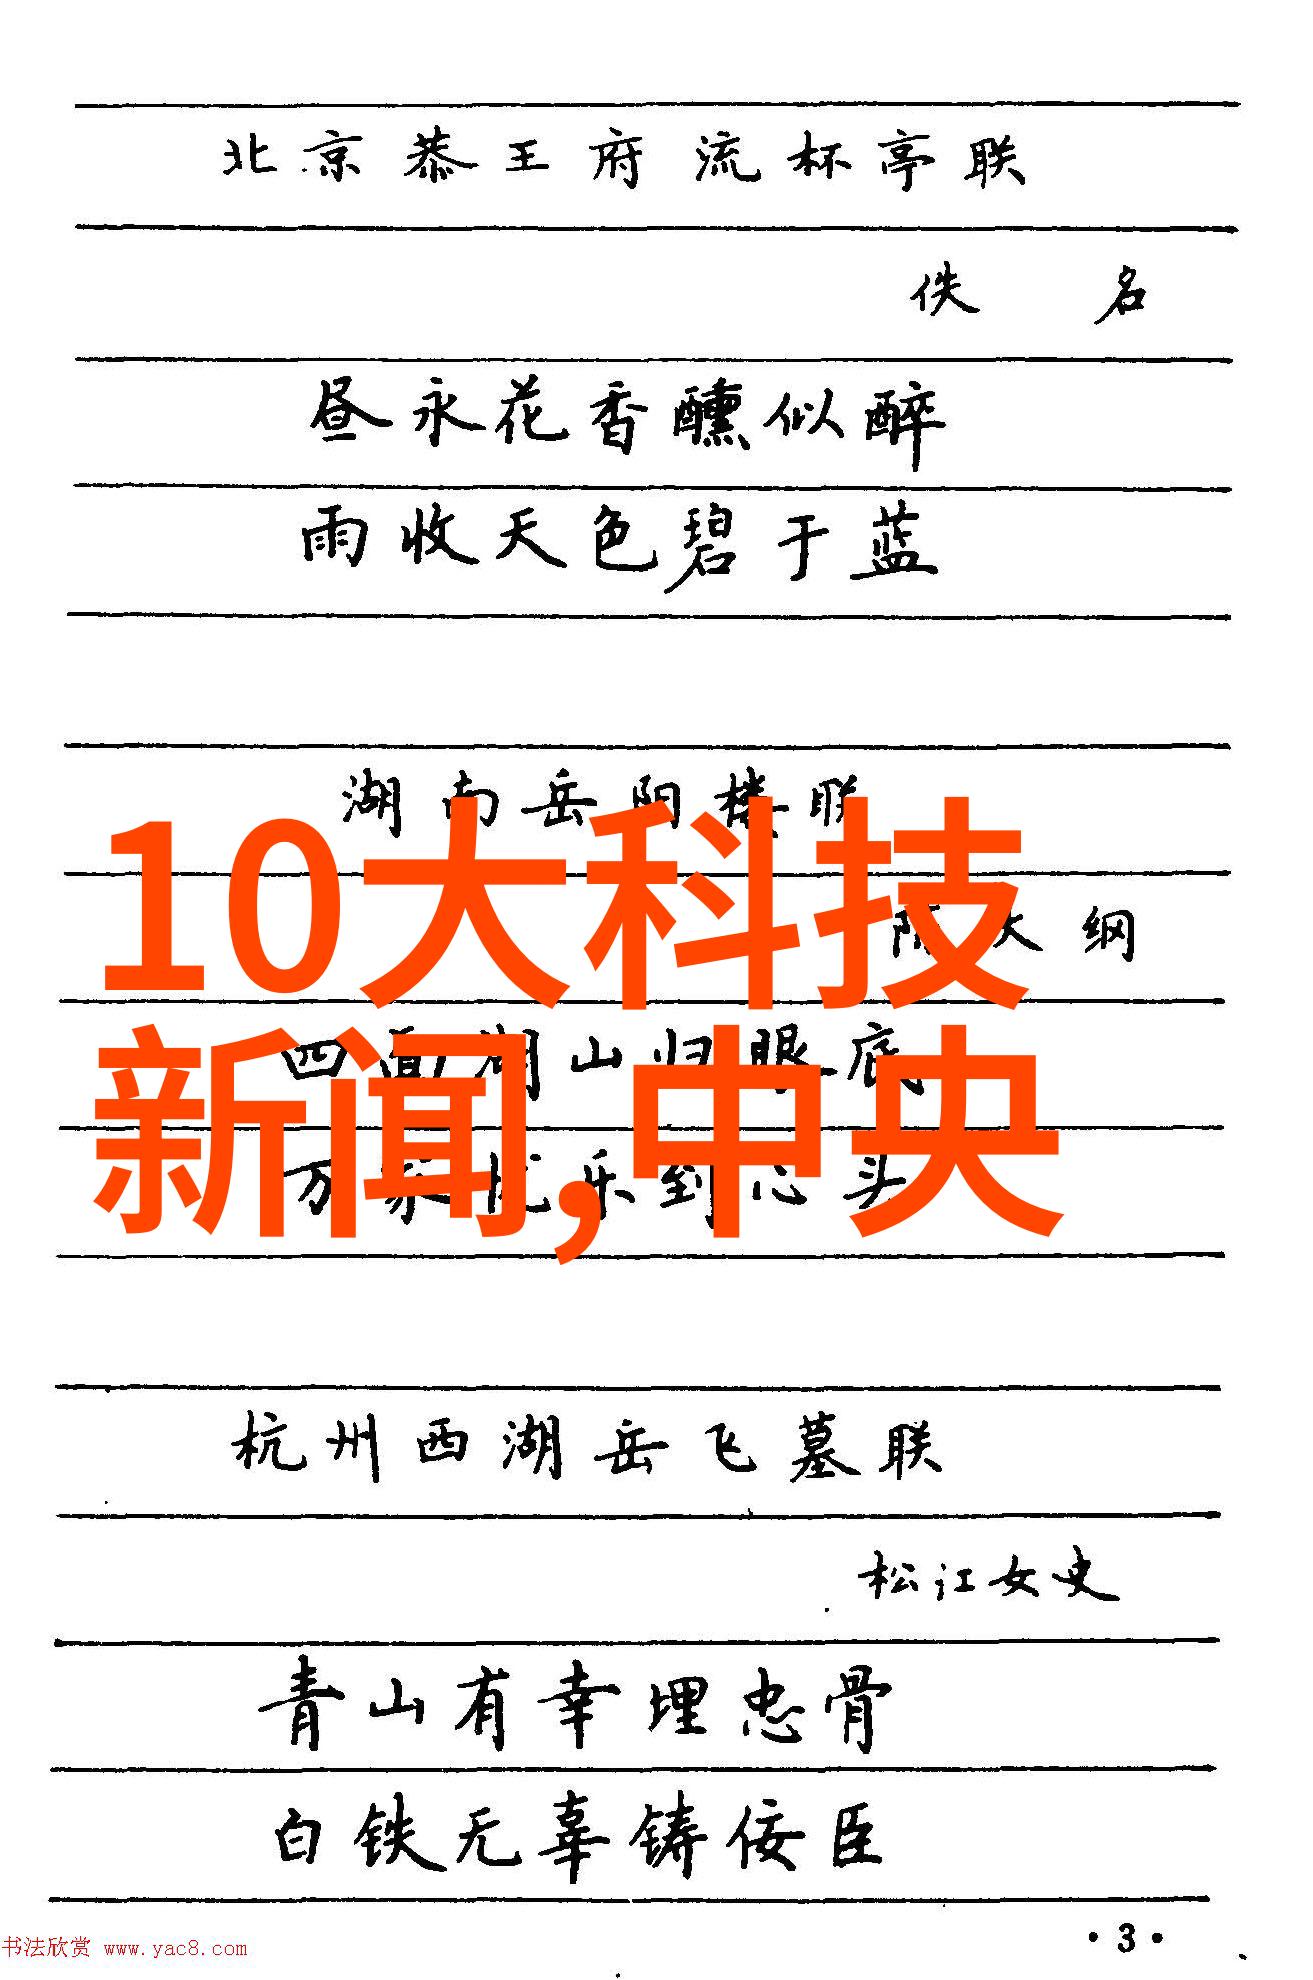 北京恭王府流杯亭联
佚名
昼永花香醺似醉
雨收天色碧于蓝
湖南岳阳楼联
10大科技
大纲
四面湖山归眼底
新闻,中央
万家忧乐到心头
杭州西湖岳飞墓联
松江女史
青山有幸埋忠骨
白铁无辜铸佞臣
·3·
书法欣赏 www.yac8.com